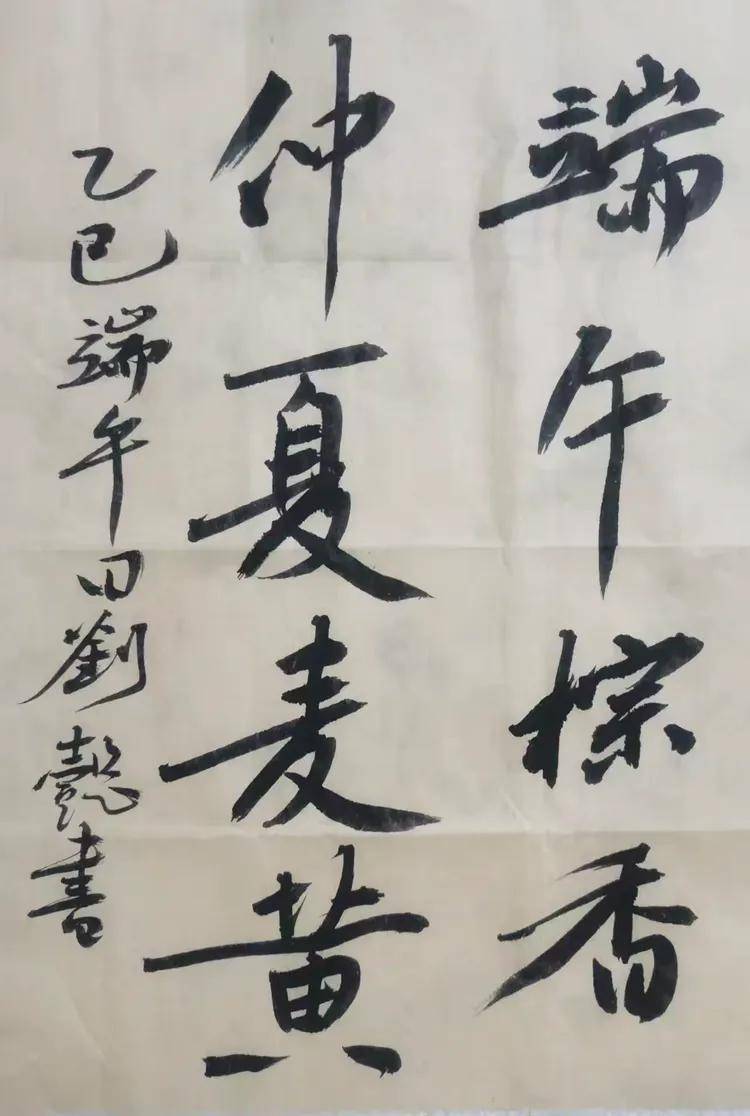 端午棕香
仲夏麦黄
乙巳端午日劉懿書